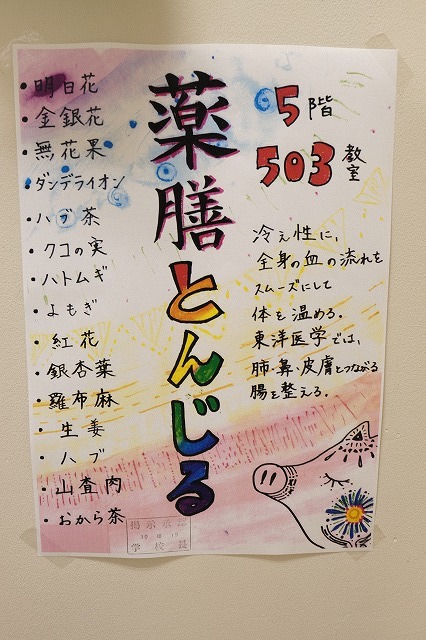 薬膳とんじる
5階
503教室
冷え性に、
全身の血の流れを
スムーズにして
体を温める。
東洋医学では、
肺・鼻・皮膚とつながる
腸を整える。
・明日花
・金銀花
・無花果
・ダンデライオン
・ハブ茶
・クコの実
・ハトムギ
・よもぎ
・紅花
・銀杏葉
・羅布麻
・生姜
・ハブ
・山査肉
・おから茶
掲示承認
学校長